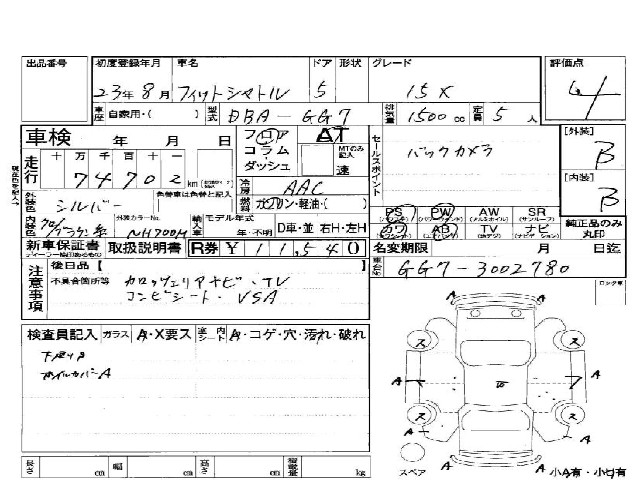 出品番号 初度登録年月 車名 ドア 形状 グレード 評価点
23年8月 フィットシャトル 5 15X 4
車歴 自家用・( ) 型式 DBA-GG7 排気量 1500cc 定員 5人
車検 年 月 日 フロア AT セールスポイント [外装]
走行 十万千百十一 コラム MTのみ記入 バックカメラ B
74702 km ダッシュ 速 [内装]
外装色 シルバー 色替車は色替と記入 冷房 AAC B
燃料 ガソリン・軽油・( ) PS PW AW SR 純正品のみ丸印
内装色 外装カラーNo. NH700M 輸入車 モデル年式 年・不明 D車・並 右H・左H カワ AB TV ナビ
新車保証書 取扱説明書 R券 ¥11,540 名変期限 月 日迄
注意事項 後日品【 】 車台No. GG7-3002780
不具合箇所等 カロッツェリアナビ・TV
コンビシート・VSA
ロング車
検査員記入 ガラス A・X要ス 室内 シート A・コゲ・穴・汚れ・破れ
下廻りS
ホイルカバーA
ス ス
A A A
ス ス
スペア A 小A有・小U有
長さ cm 幅 cm 高さ cm 積載量 kg